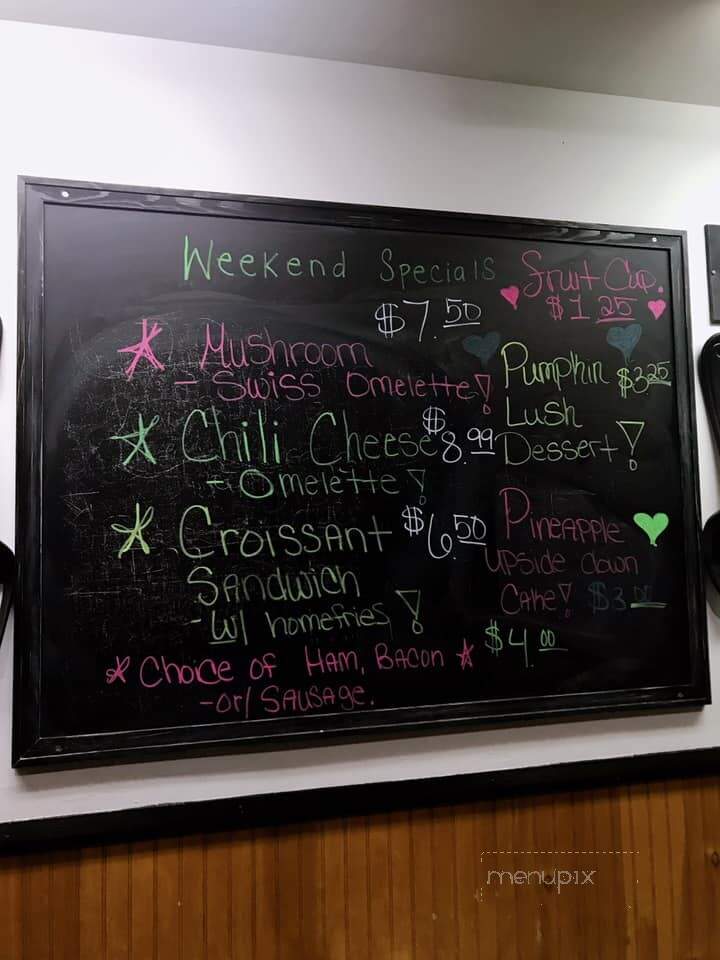 Weekend Specials
$7.50
* Mushroom
- Swiss Omelette!
* Chili Cheese $8.99
- Omelette!
* Croissant $6.50
Sandwich
- w/ homefries!
* Choice of Ham, Bacon * $4.00
- or/ Sausage.
Fruit Cup.
$1.25
Pumpkin $3.25
Lush
Dessert!
Pineapple
upside down
Cake! $3.00
menupix